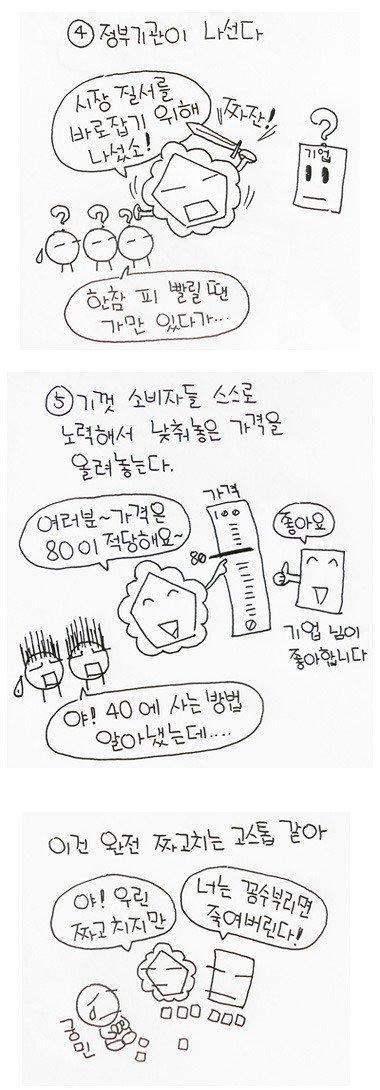 ④ 정부기관이 나선다
시장 질서를
바로잡기 위해
나섰소!
짜잔!
?
기업
? ? ?
한참 피 빨릴 땐
가만 있다가...
⑤ 기껏 소비자들 스스로
노력해서 낮춰놓은 가격을
올려놓는다.
여러분~가격은
80이 적당해요~
가격
100
80
0
좋아요
기업 님이
좋아합니다
야! 40에 사는 방법
알아냈는데....
이건 완전 짜고치는 고스톱 같아
야! 우린
짜고 치지만
너는 꽁수부리면
죽여버린다!
궁민